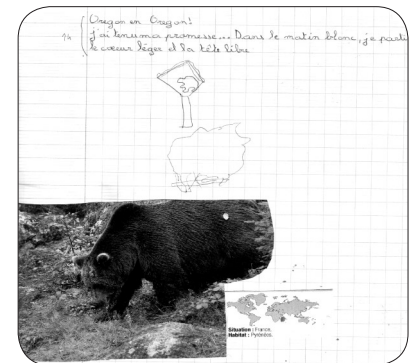 Oregon en Oregon!
14 j'ai tenu ma promesse... Dans le matin blanc, je parti
le cœur léger et la tête libre
Situation : France.
Habitat : Pyrénées.